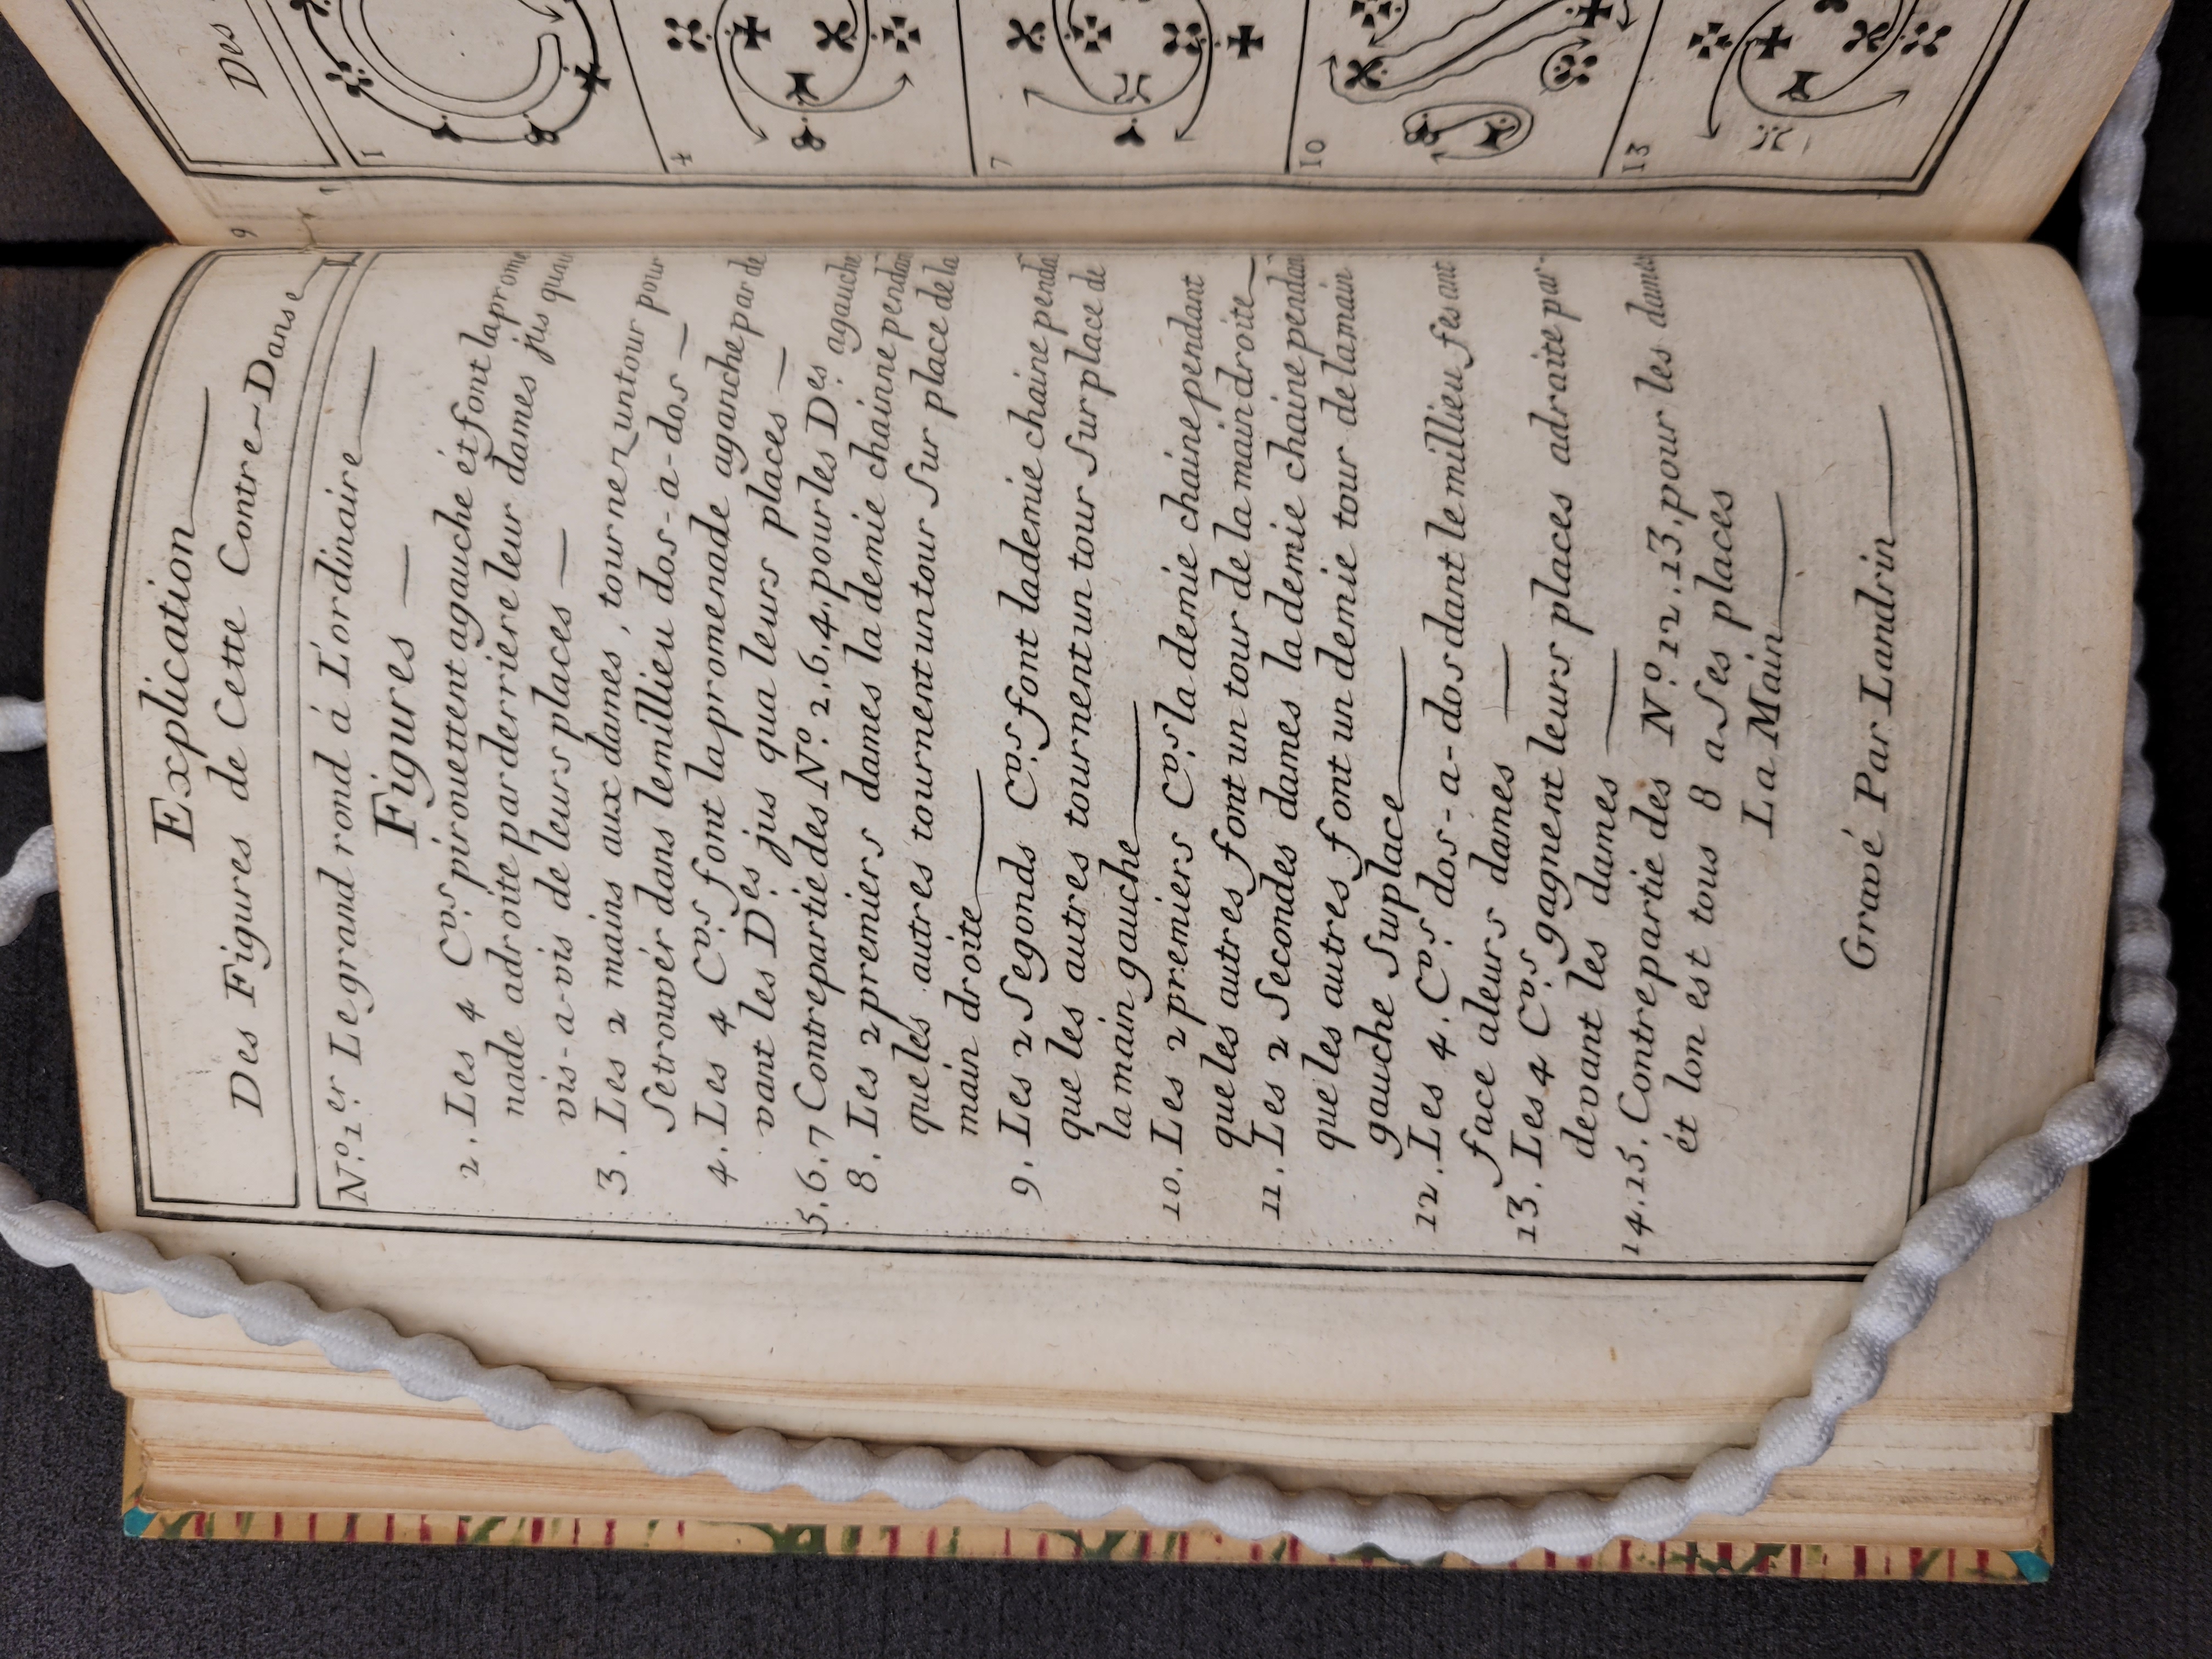 Explication
Des Figures de Cette Contre-Danse
N.º 1.er Le grand rond á L'ordinaire
Figures
2. Les 4 C.vs pirouettent agauche ét font la prome
nade adroite par derriere leur dames jus quau
vis-a-vis de leurs places
3. Les 2 mains aux dames, tourner un tour pour
Se trouvér dans le millieu dos-a-dos
4. Les 4 C.vs font la promenade agauche par de
vant les D.es jus qua leurs places
5.6.7 Contrepartie des N.º 2,6,4, pour les D.es agauche
8. Les 2 premiers dames la demie chainne pendant
que les autres tournent un tour Sur place de la
main droite
9. Les 2 Segonds C.vs font la demie chaine pendant
que les autres tournent un tour Sur place de
la main gauche
10. Les 2 premiers C.vs la demie chaine pendant
que les autres font un tour de la main droite
11. Les 2 Secondes dames la demie chaine pendant
que les autres font un demie tour de la main
gauche Sur place
12. Les 4. C.vs dos-a-dos dant le millieu fes ant
face a leurs dames
13. Les 4 C.vs gagnent leurs places adraite par-
devant les dames
14.15. Contrepartie des N.º 12.13, pour les dames
ét lon est tous 8 a Ses places
La Main
Gravé Par Landrin
9
Des
1
1
4
7
10
13